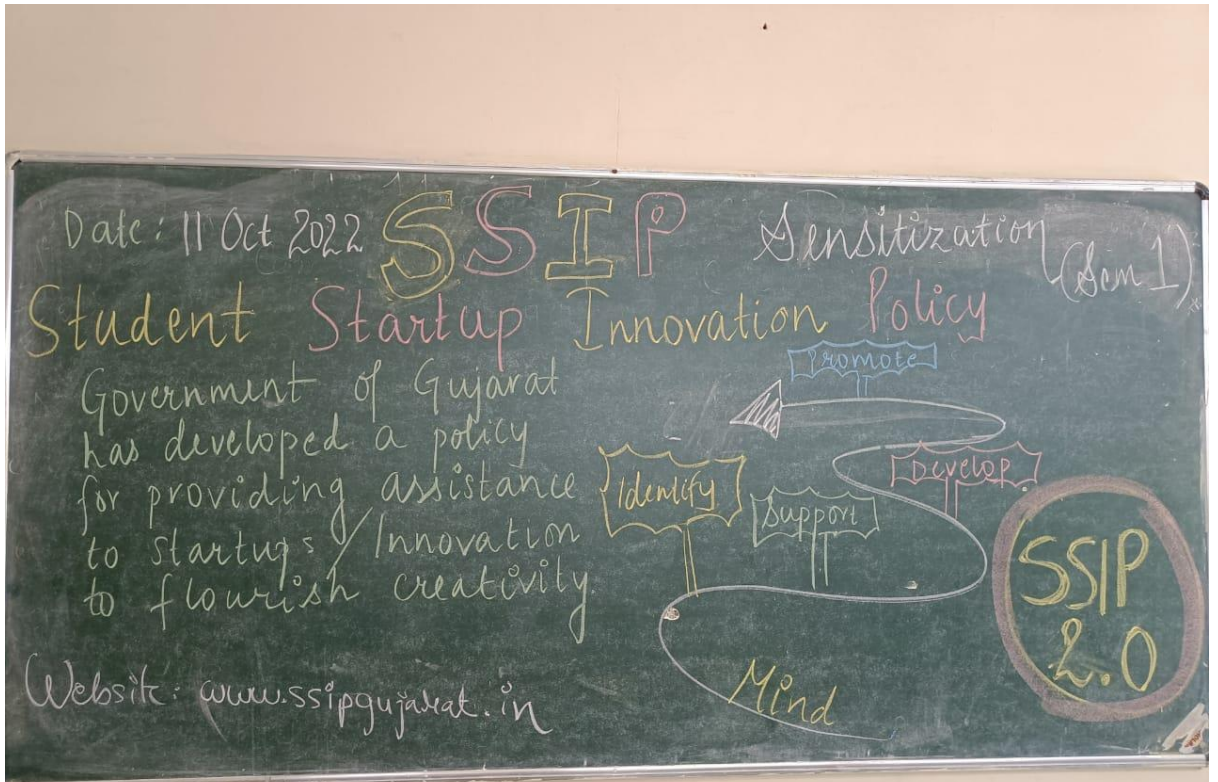 Date: 11 Oct 2022 SSIP Sensitization (Sem 1)
Student Startup Innovation Policy
Government of Gujarat
has developed a policy
for providing assistance
to startups/Innovation
to flourish creativity.
Promote
Develop
Identify
Support
Mind
SSIP
2.0
Website: www.ssipgujarat.in